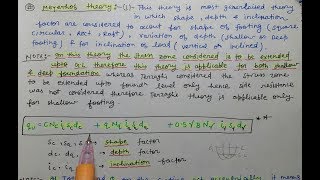 Meyerhof's theory:- (1)- This theory is most generalised theory
in which shape, depth & inclination
factor are considered to account for shape of footing (square
circular, Rect, Raft) & variation of depth (shallow or Deep
footing) & for inclination of load (vertical or inclined).
NOTE:- In this theory the strain zone is considered to be extended
upto G.L therefore this theory is applicable for both shallow
& deep foundation whereas Terzaghi considered the strain zone
to be extended upto found<sup>n</sup> level only hence site resistance
was not considered therefore Terzaghi theory is applicable only
for shallow footing.
qu = CNc ic sc dc + q Nq iq sq dq + 0.5 γ B Nγ iγ sγ dγ
→ shape factor
→ depth factor
→ inclination factor